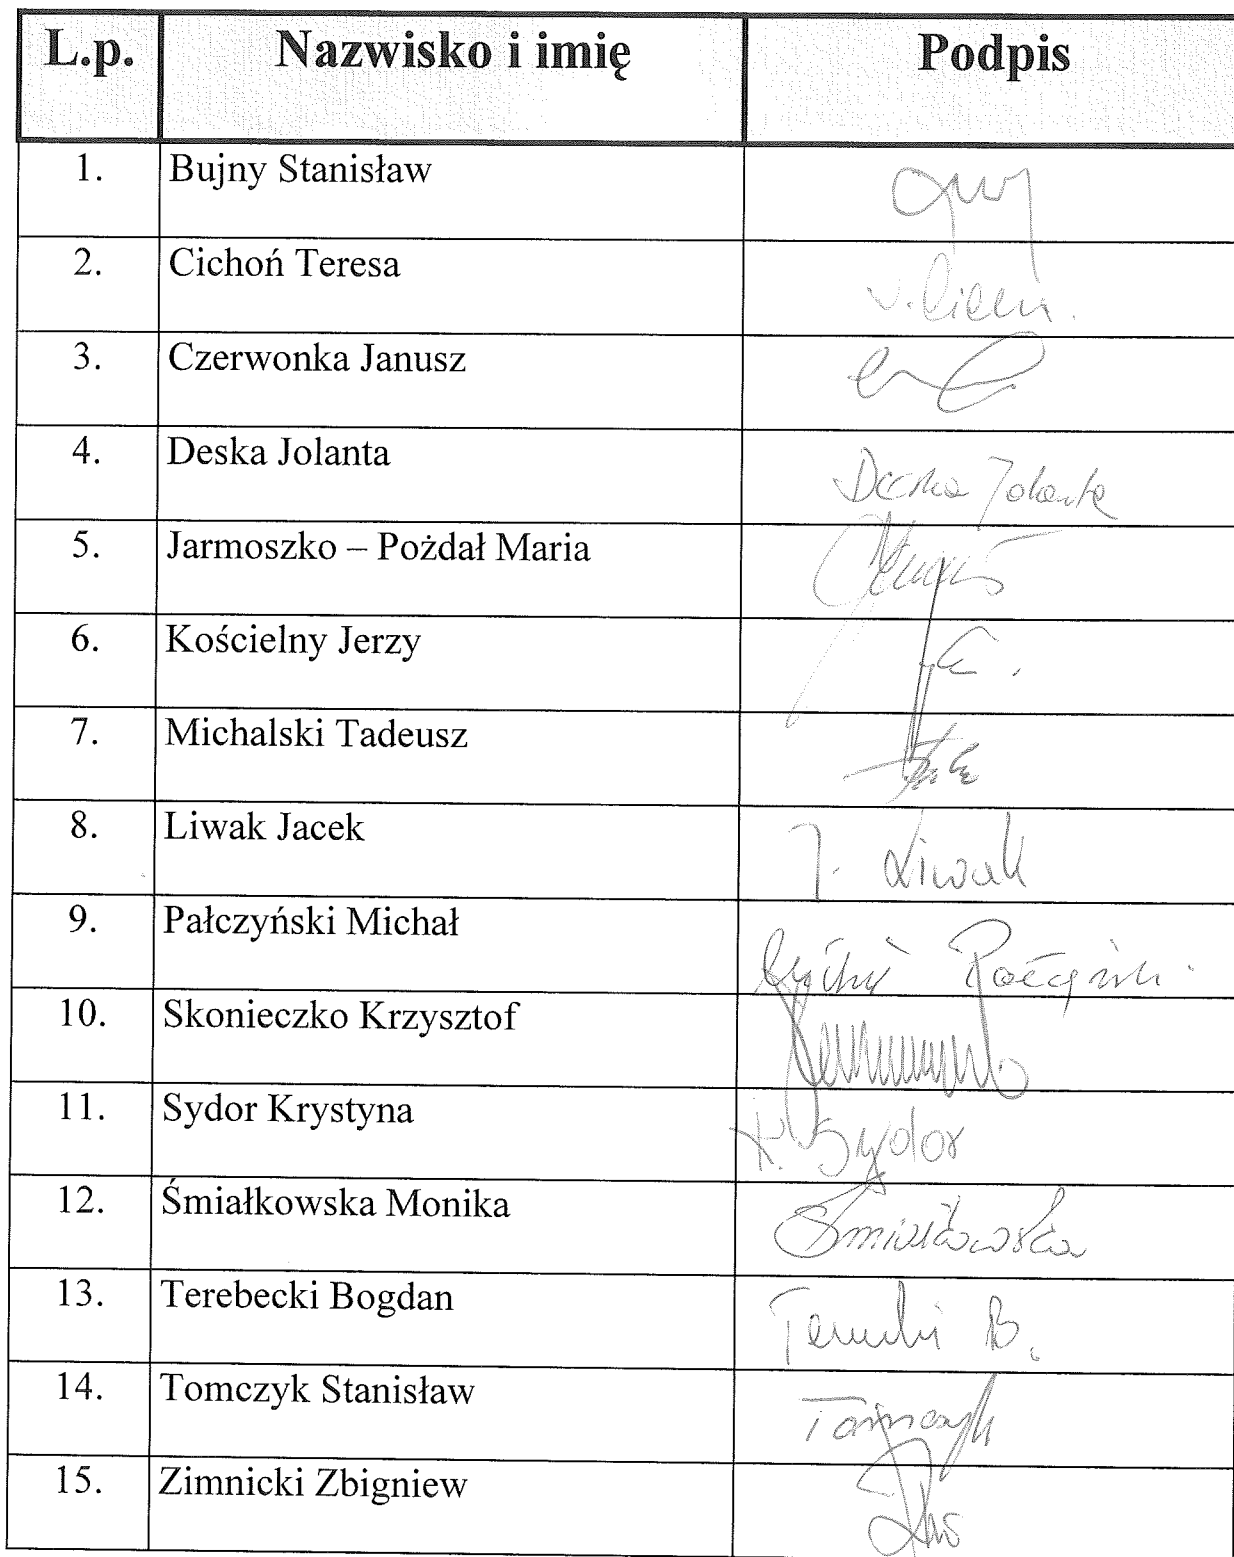 L.p. Nazwisko i imię Podpis
1. Bujny Stanisław
2. Cichoń Teresa
3. Czerwonka Janusz
4. Deska Jolanta Deska Jolanta
5. Jarmoszko – Pożdał Maria
6. Kościelny Jerzy
7. Michalski Tadeusz
8. Liwak Jacek J. Liwak
9. Pałczyński Michał
10. Skonieczko Krzysztof
11. Sydor Krystyna K. Sydor
12. Śmiałkowska Monika Śmiałkowska
13. Terebecki Bogdan
14. Tomczyk Stanisław Tomczyk
15. Zimnicki Zbigniew